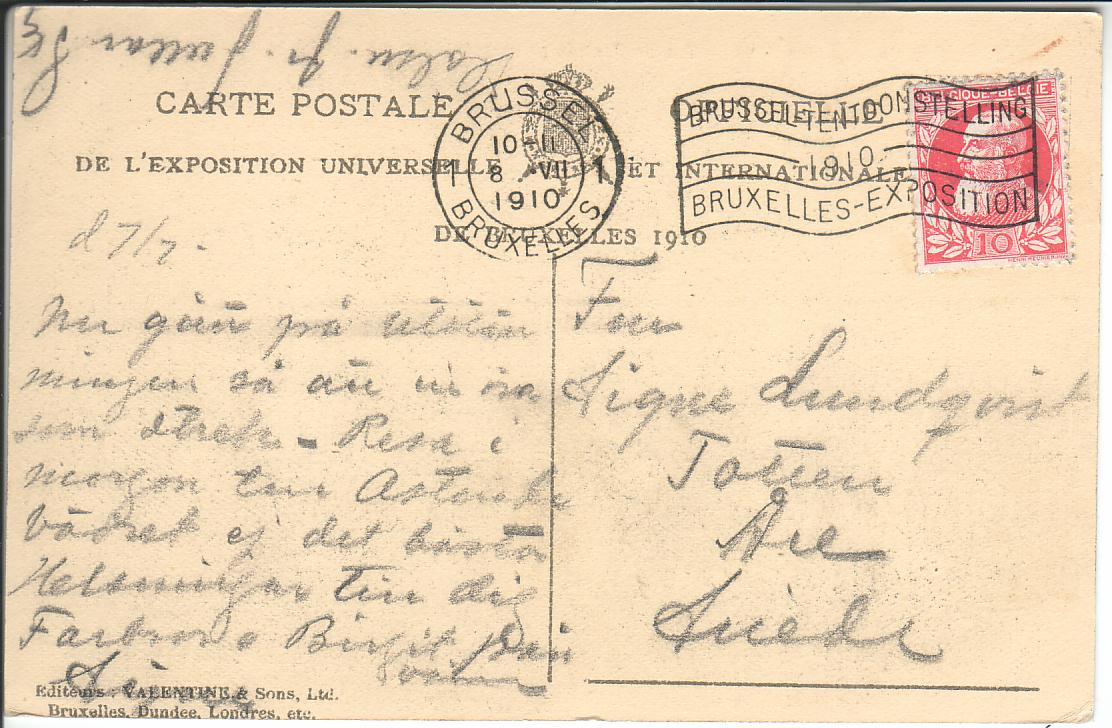 CARTE POSTALE OFFICIELLE
DE L'EXPOSITION UNIVERSELLE ET INTERNATIONALE
DE BRUXELLES 1910
BRUSSEL
10-11
1 8 VII 1
1910
BRUXELLES
BRUSSEL-TENTOONSTELLING
1910
BRUXELLES-EXPOSITION
BELGIQUE-BELGIE
10
d 7/7.
Nu går på utställ
ningen så att vi
som streck - Resa i
morgon till Ostende
Vädret ej det bästa
Helsningar till dig
Farbror o Birgit från
Fru
Signe Lundqvist
Totten
Åre
Suède
Editeurs : VALENTINE & Sons, Ltd.
Bruxelles, Dundee, Londres, etc.